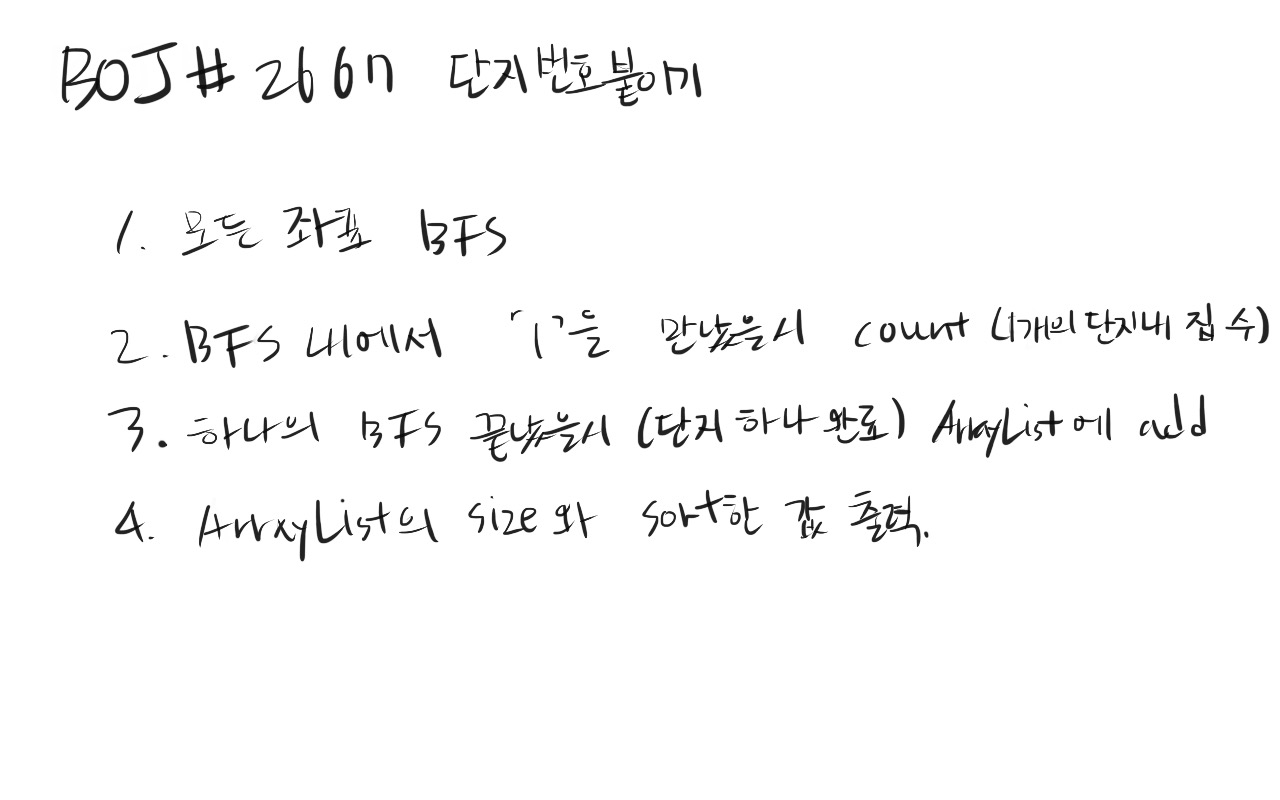 BOJ# 2667 단지번호붙이기
1. 모든 좌표 BFS
2. BFS 내에서 '1'을 만났을시 count (1개의 단지내 집 수)
3. 하나의 BFS 끝났을시 (단지 하나 완료) ArrayList에 add
4. ArrayList의 size와 sort한 값 출력.